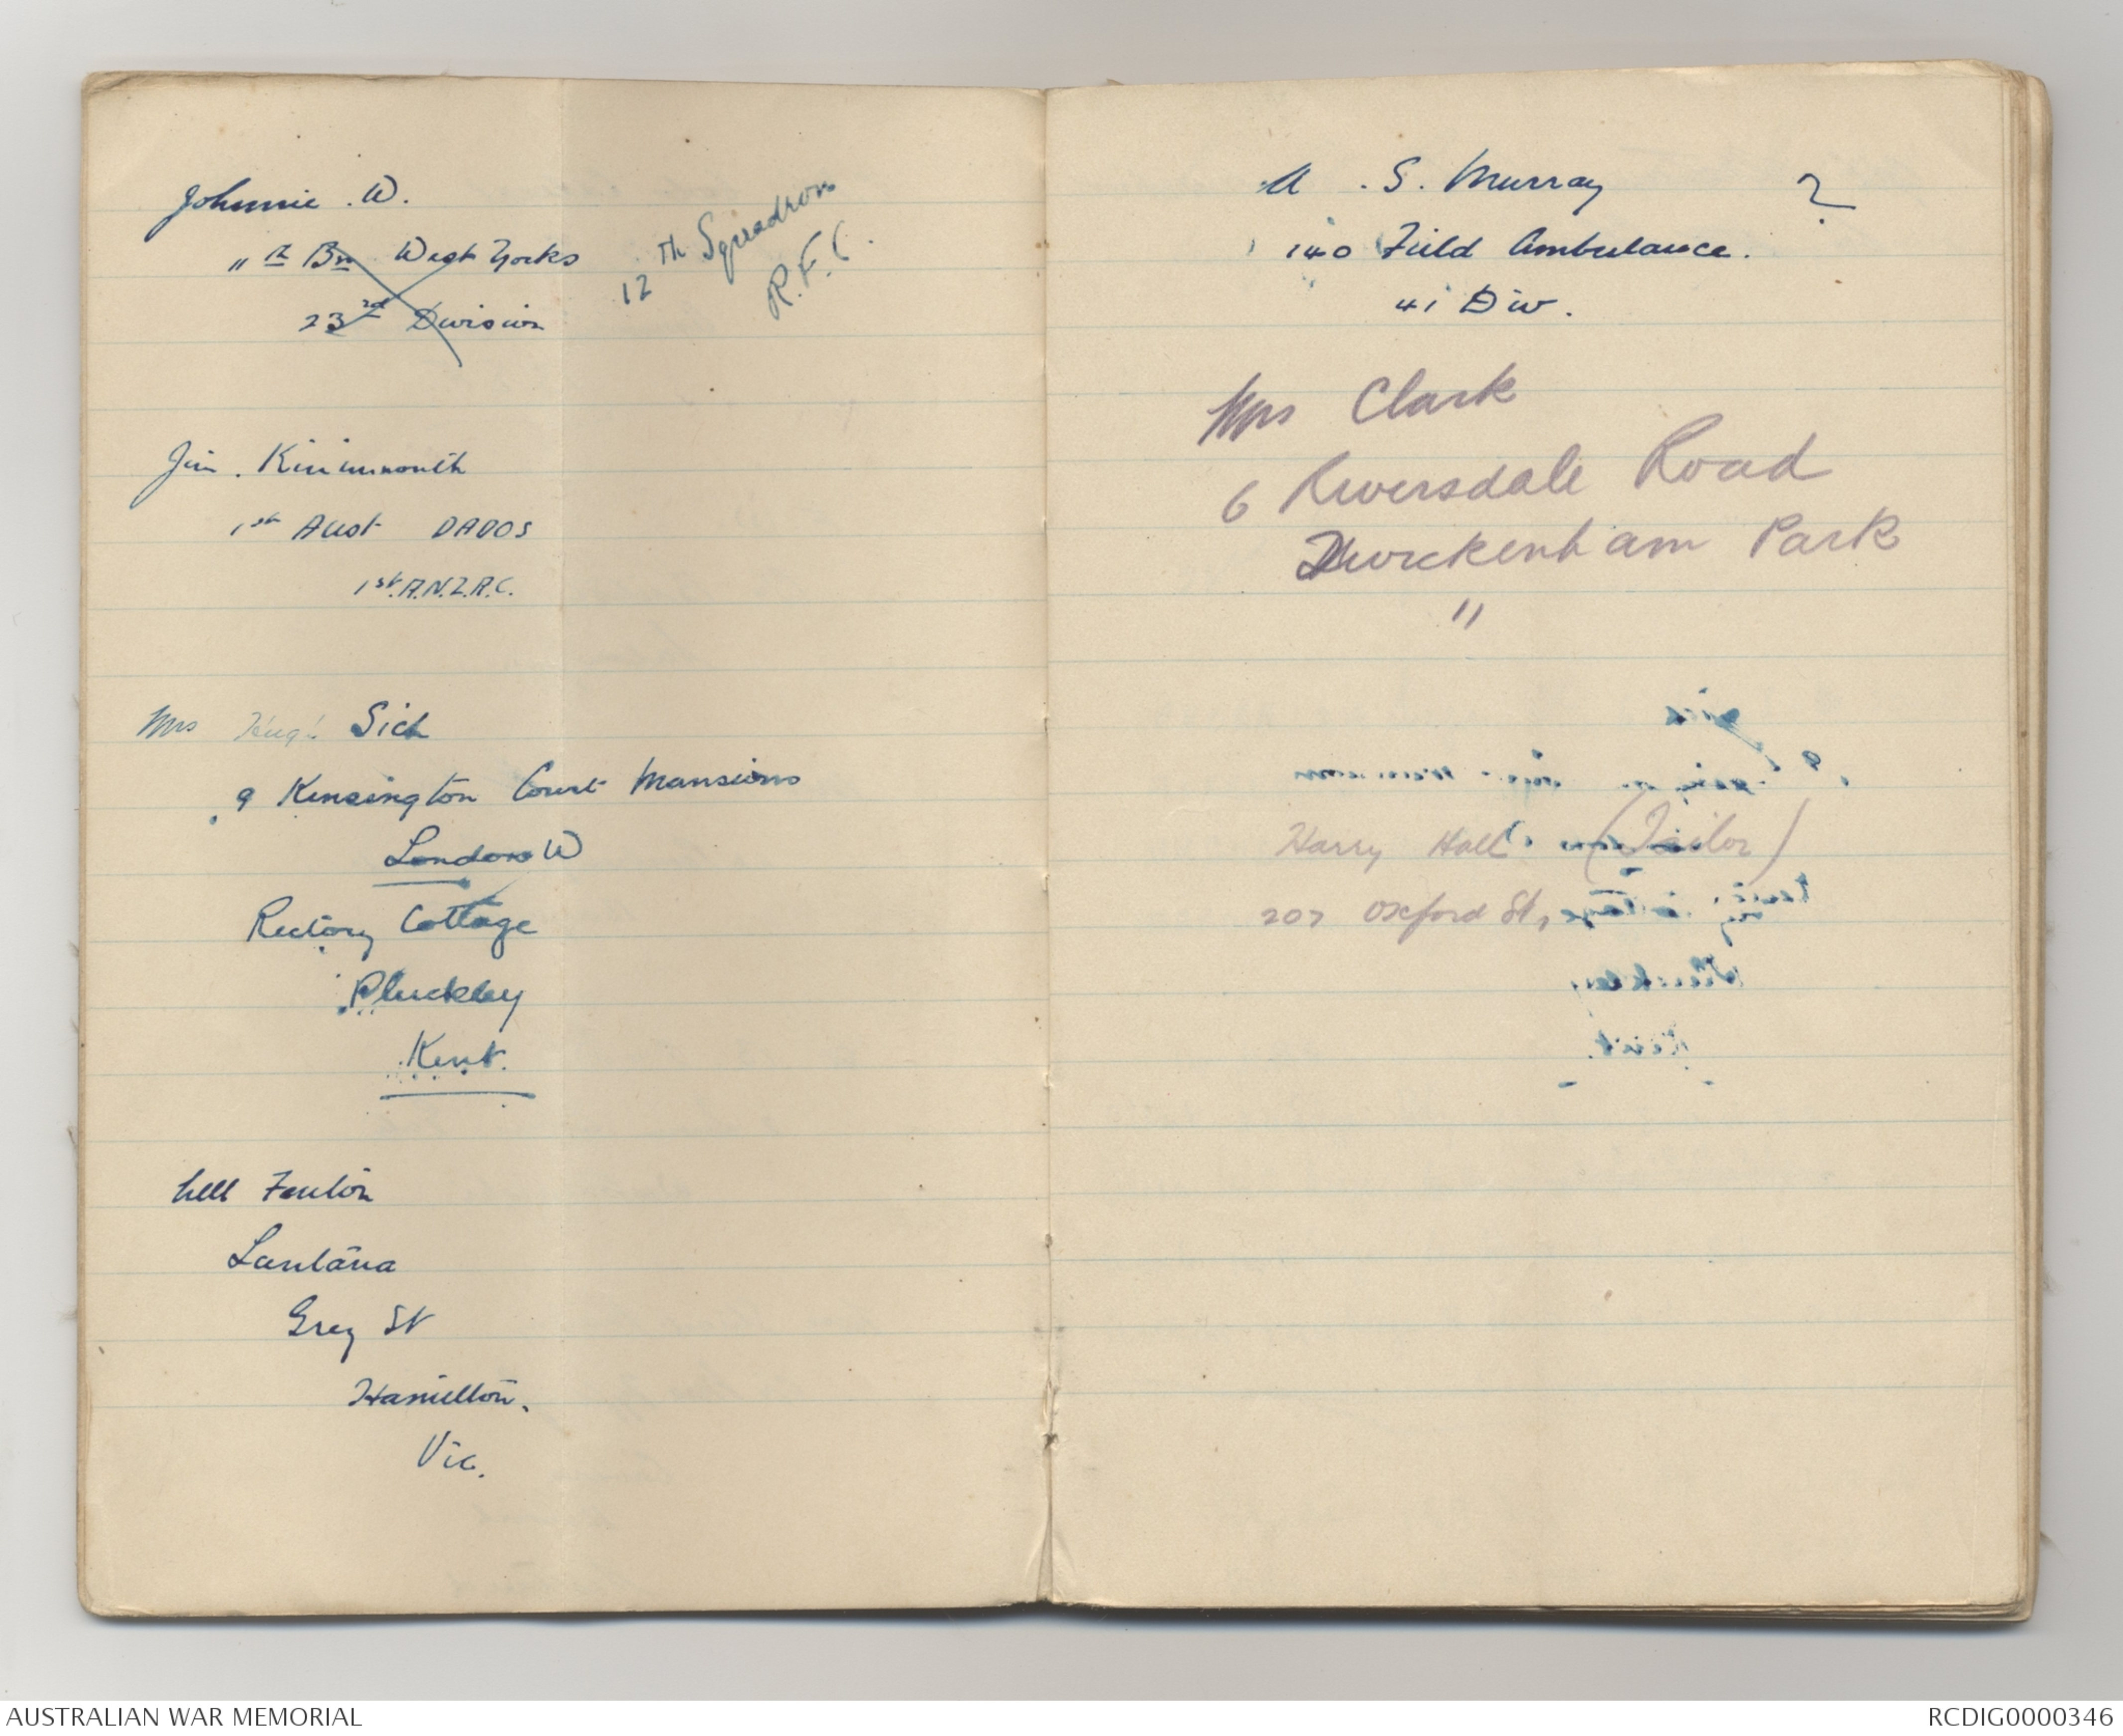 Johnnie . W.
11th Bn West Yorks
23rd Division
12th Squadron
R.F.C.
Jim . Kinimmonth
1st Aust DADOS
1st. A.N.Z.A.C.
Mrs Sich
9 Kensington Court Mansions
London W
Rectory Cottage
Pluckley
Kent.
Nell Fenton
Lantana
Grey St
Hamilton.
Vic.
A . S. Murray ?
140 Field Ambulance.
41 Div.
Mrs Clark
6 Riversdale Road
Twickenham Park
"
Harry Hall (Tailor)
207 Oxford St,
AUSTRALIAN WAR MEMORIAL
RCDIG0000346